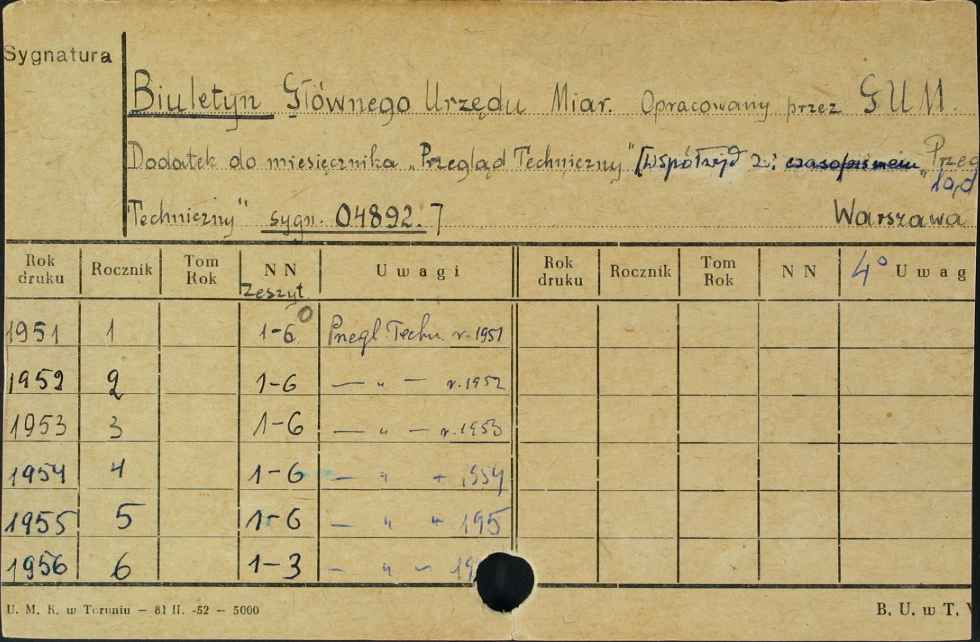 Sygnatura
Biuletyn Głównego Urzędu Miar. Opracowany przez GUM.
Dodatek do miesięcznika „Przegląd Techniczny" [Współwyd z: czasopismem „Przeg
Techniczny" sygn. 04892.]
Warszawa
Rok druku Rocznik Tom Rok N N Zeszyt Uwagi Rok druku Rocznik Tom Rok N N 4° Uwag
1951 1 1-6 Przegl. Techn. r. 1951
1952 2 1-6 — „ — r. 1952
1953 3 1-6 — „ — r. 1953
1954 4 1-6 — „ 1954
1955 5 1-6 — „ „ 195
1956 6 1-3 — „ — 19
U. M. K. w Toruniu — 81 II. -52 — 5000
B. U. w T.